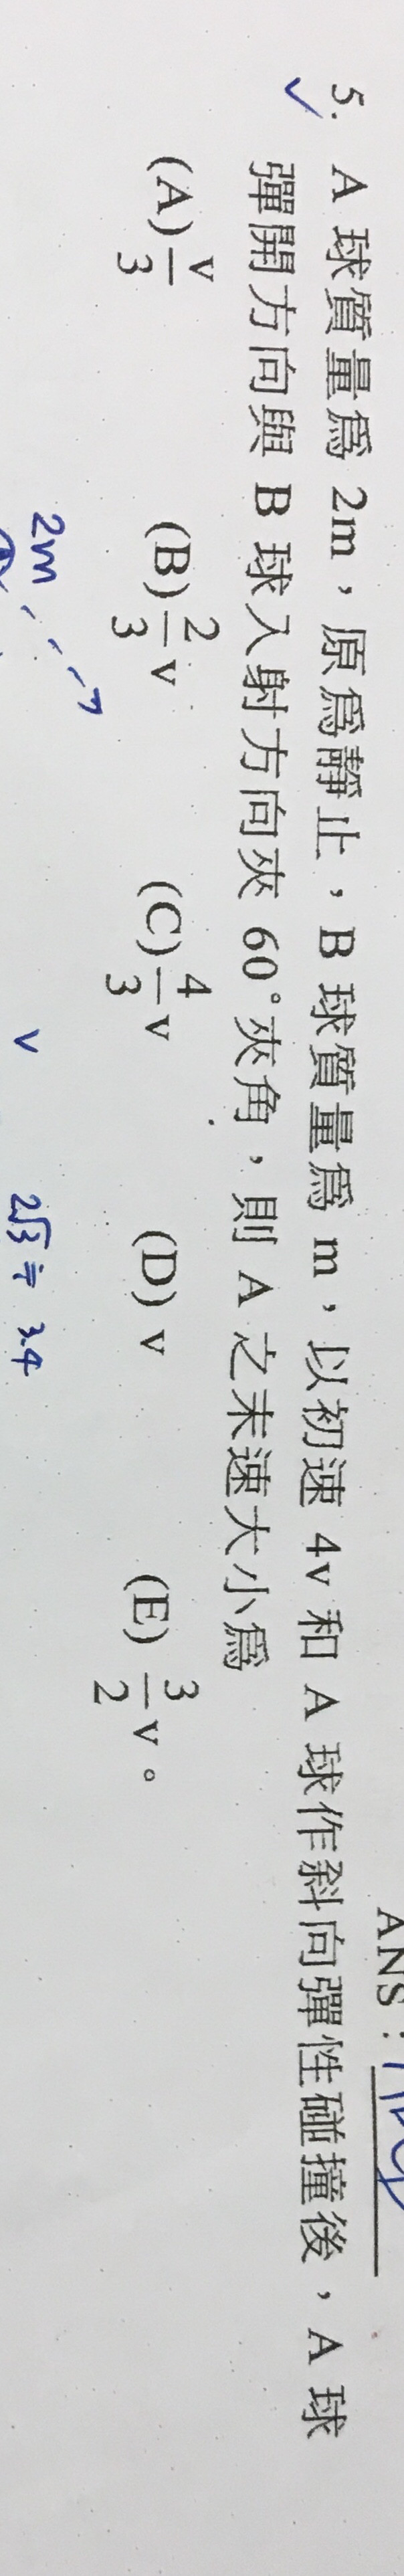 ANS：
5. A 球質量為 2m，原為靜止，B 球質量為 m，以初速 4v 和 A 球作斜向彈性碰撞後，A 球
彈開方向與 B 球入射方向夾 60°夾角，則 A 之末速大小為
(A) v/3 (B) 2/3 v (C) 4/3 v (D) v (E) 3/2 v。
2m v 2√3 ≒ 3.4